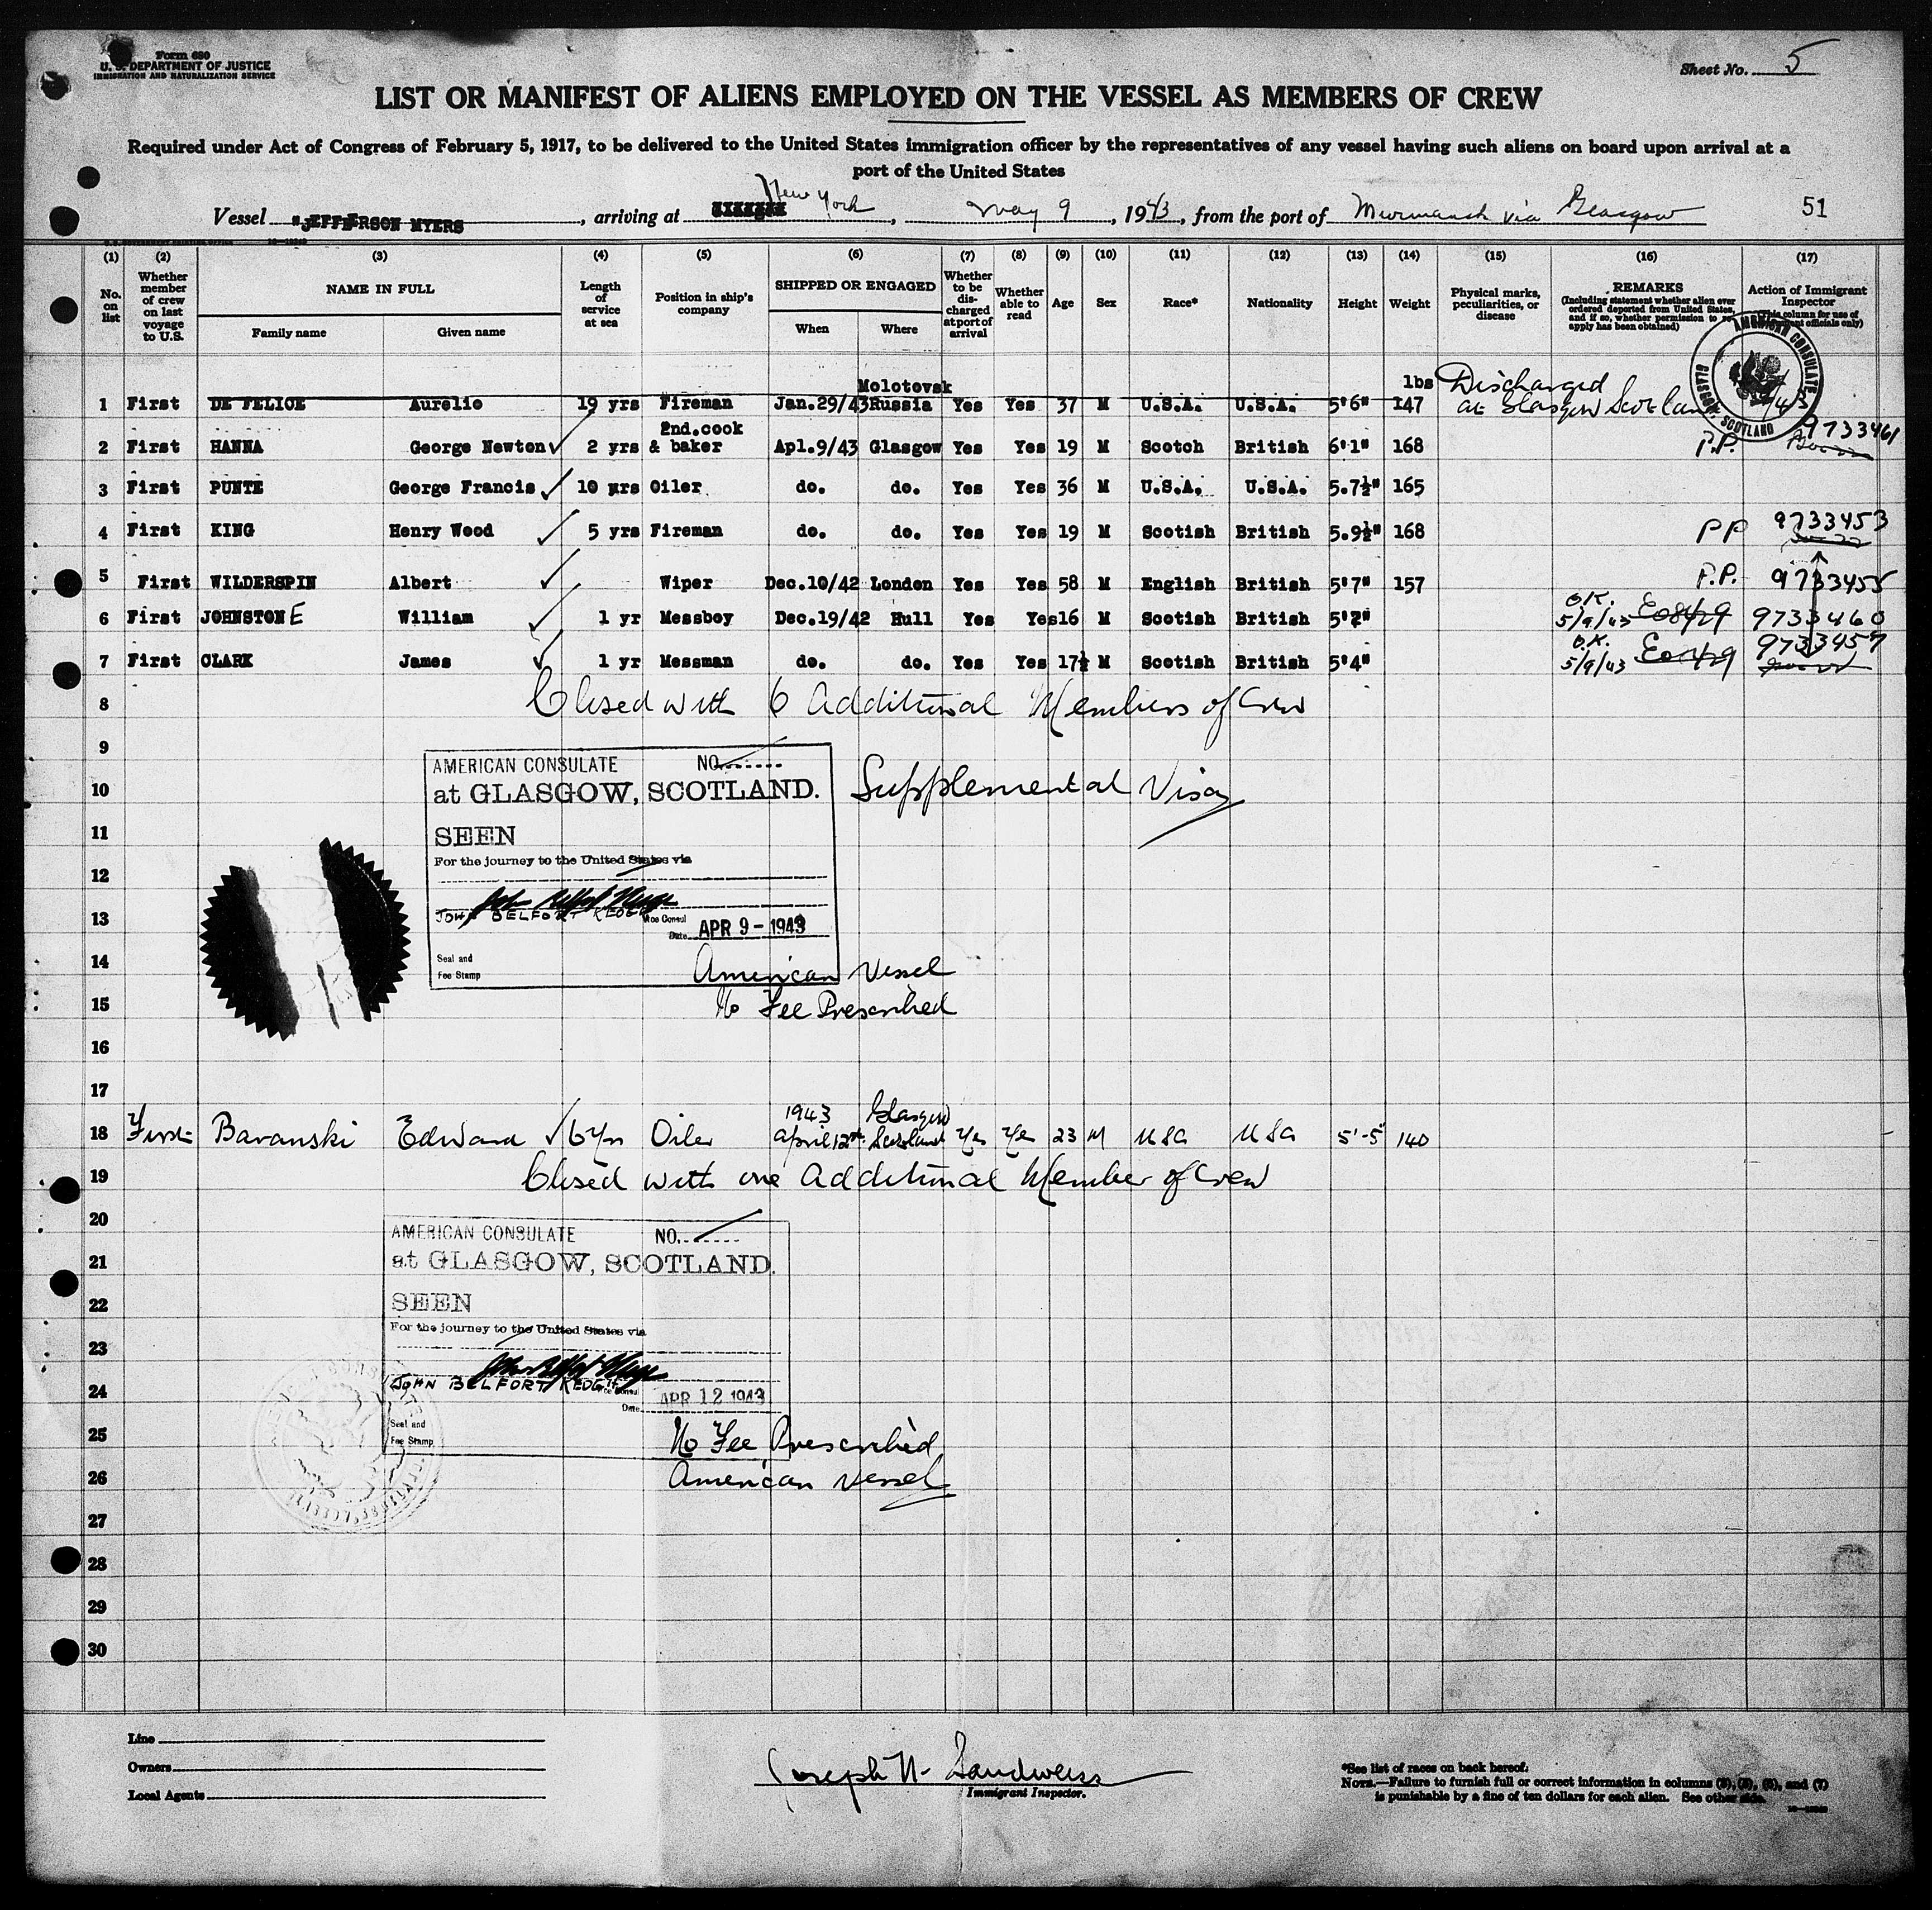 Form 680
U. S. DEPARTMENT OF JUSTICE
IMMIGRATION AND NATURALIZATION SERVICE
Sheet No. 5
LIST OR MANIFEST OF ALIENS EMPLOYED ON THE VESSEL AS MEMBERS OF CREW
Required under Act of Congress of February 5, 1917, to be delivered to the United States immigration officer by the representatives of any vessel having such aliens on board upon arrival at a
port of the United States
Vessel "JEFFERSON MYERS, arriving at New York, May 9, 1943, from the port of Murmansk via Glasgow 51
(1) (2) (3) (4) (5) (6) (7) (8) (9) (10) (11) (12) (13) (14) (15) (16) (17)
No. on list
Whether member of crew on last voyage to U.S.
NAME IN FULL
Family name Given name
Length of service at sea
Position in ship's company
SHIPPED OR ENGAGED
When Where
Whether to be discharged at port of arrival
Whether able to read
Age
Sex
Race*
Nationality
Height
Weight
Physical marks, peculiarities, or disease
REMARKS
(Including statement whether alien ever ordered deported from United States, and if so, whether permission to re-apply has been obtained)
Action of Immigrant Inspector
AMERICAN CONSULATE
GLASGOW, SCOTLAND
Molotovsk lbs Discharged
1 First DE FELICE Aurelio 19 yrs Fireman Jan.29/43 Russia Yes Yes 37 M U.S.A. U.S.A. 5'6" 147 at Glasgow Scotland
2nd.cook
2 First HANNA George Newton ✓ 2 yrs & baker Apl.9/43 Glasgow Yes Yes 19 M Scotch British 6'1" 168 P.P. 9733461
3 First PUNTE George Francis ✓ 10 yrs Oiler do. do. Yes Yes 36 M U.S.A. U.S.A. 5.7½" 165
4 First KING Henry Wood ✓ 5 yrs Fireman do. do. Yes Yes 19 M Scotish British 5.9½" 168 PP 9733453
5 First WILDERSPIN Albert ✓ Wiper Dec.10/42 London Yes Yes 58 M English British 5'7" 157 P.P. 9733455
6 First JOHNSTONE William ✓ 1 yr Messboy Dec.19/42 Hull Yes Yes 16 M Scotish British 5'2" O.K. 5/9/43 9733460
7 First CLARK James ✓ 1 yr Messman do. do. Yes Yes 17½ M Scotish British 5'4" O.K. 5/9/43 9733457
8 Closed with 6 Additional Members of Crew
9
AMERICAN CONSULATE NO.
10 at GLASGOW, SCOTLAND. Supplemental Visa
11 SEEN
For the journey to the United States via
12
13 JOHN BELFORT KEOGH Vice Consul
Date APR 9 - 1943
14 Seal and
Fee Stamp
American Vessel
15 No Fee Prescribed
16
17
1943 Glasgow
18 First Baranski Edward ✓ 6 Yrs Oiler April 12th Scotland Yes Yes 23 M USA USA 5'-5" 140
19 Closed with one Additional Member of Crew
20 AMERICAN CONSULATE NO.
21 at GLASGOW, SCOTLAND.
22 SEEN
For the journey to the United States via
23
24 JOHN BELFORT KEOGH Vice Consul
Date APR 12 1943
25 Seal and
Fee Stamp
No Fee Prescribed
26 American Vessel
27
28
29
30
Line
Owners
Local Agents
Joseph N. Landweiss
Immigrant Inspector.
*See list of races on back hereof.
NOTE.—Failure to furnish full or correct information in columns (3), (5), (6), and (7)
is punishable by a fine of ten dollars for each alien. See other side.